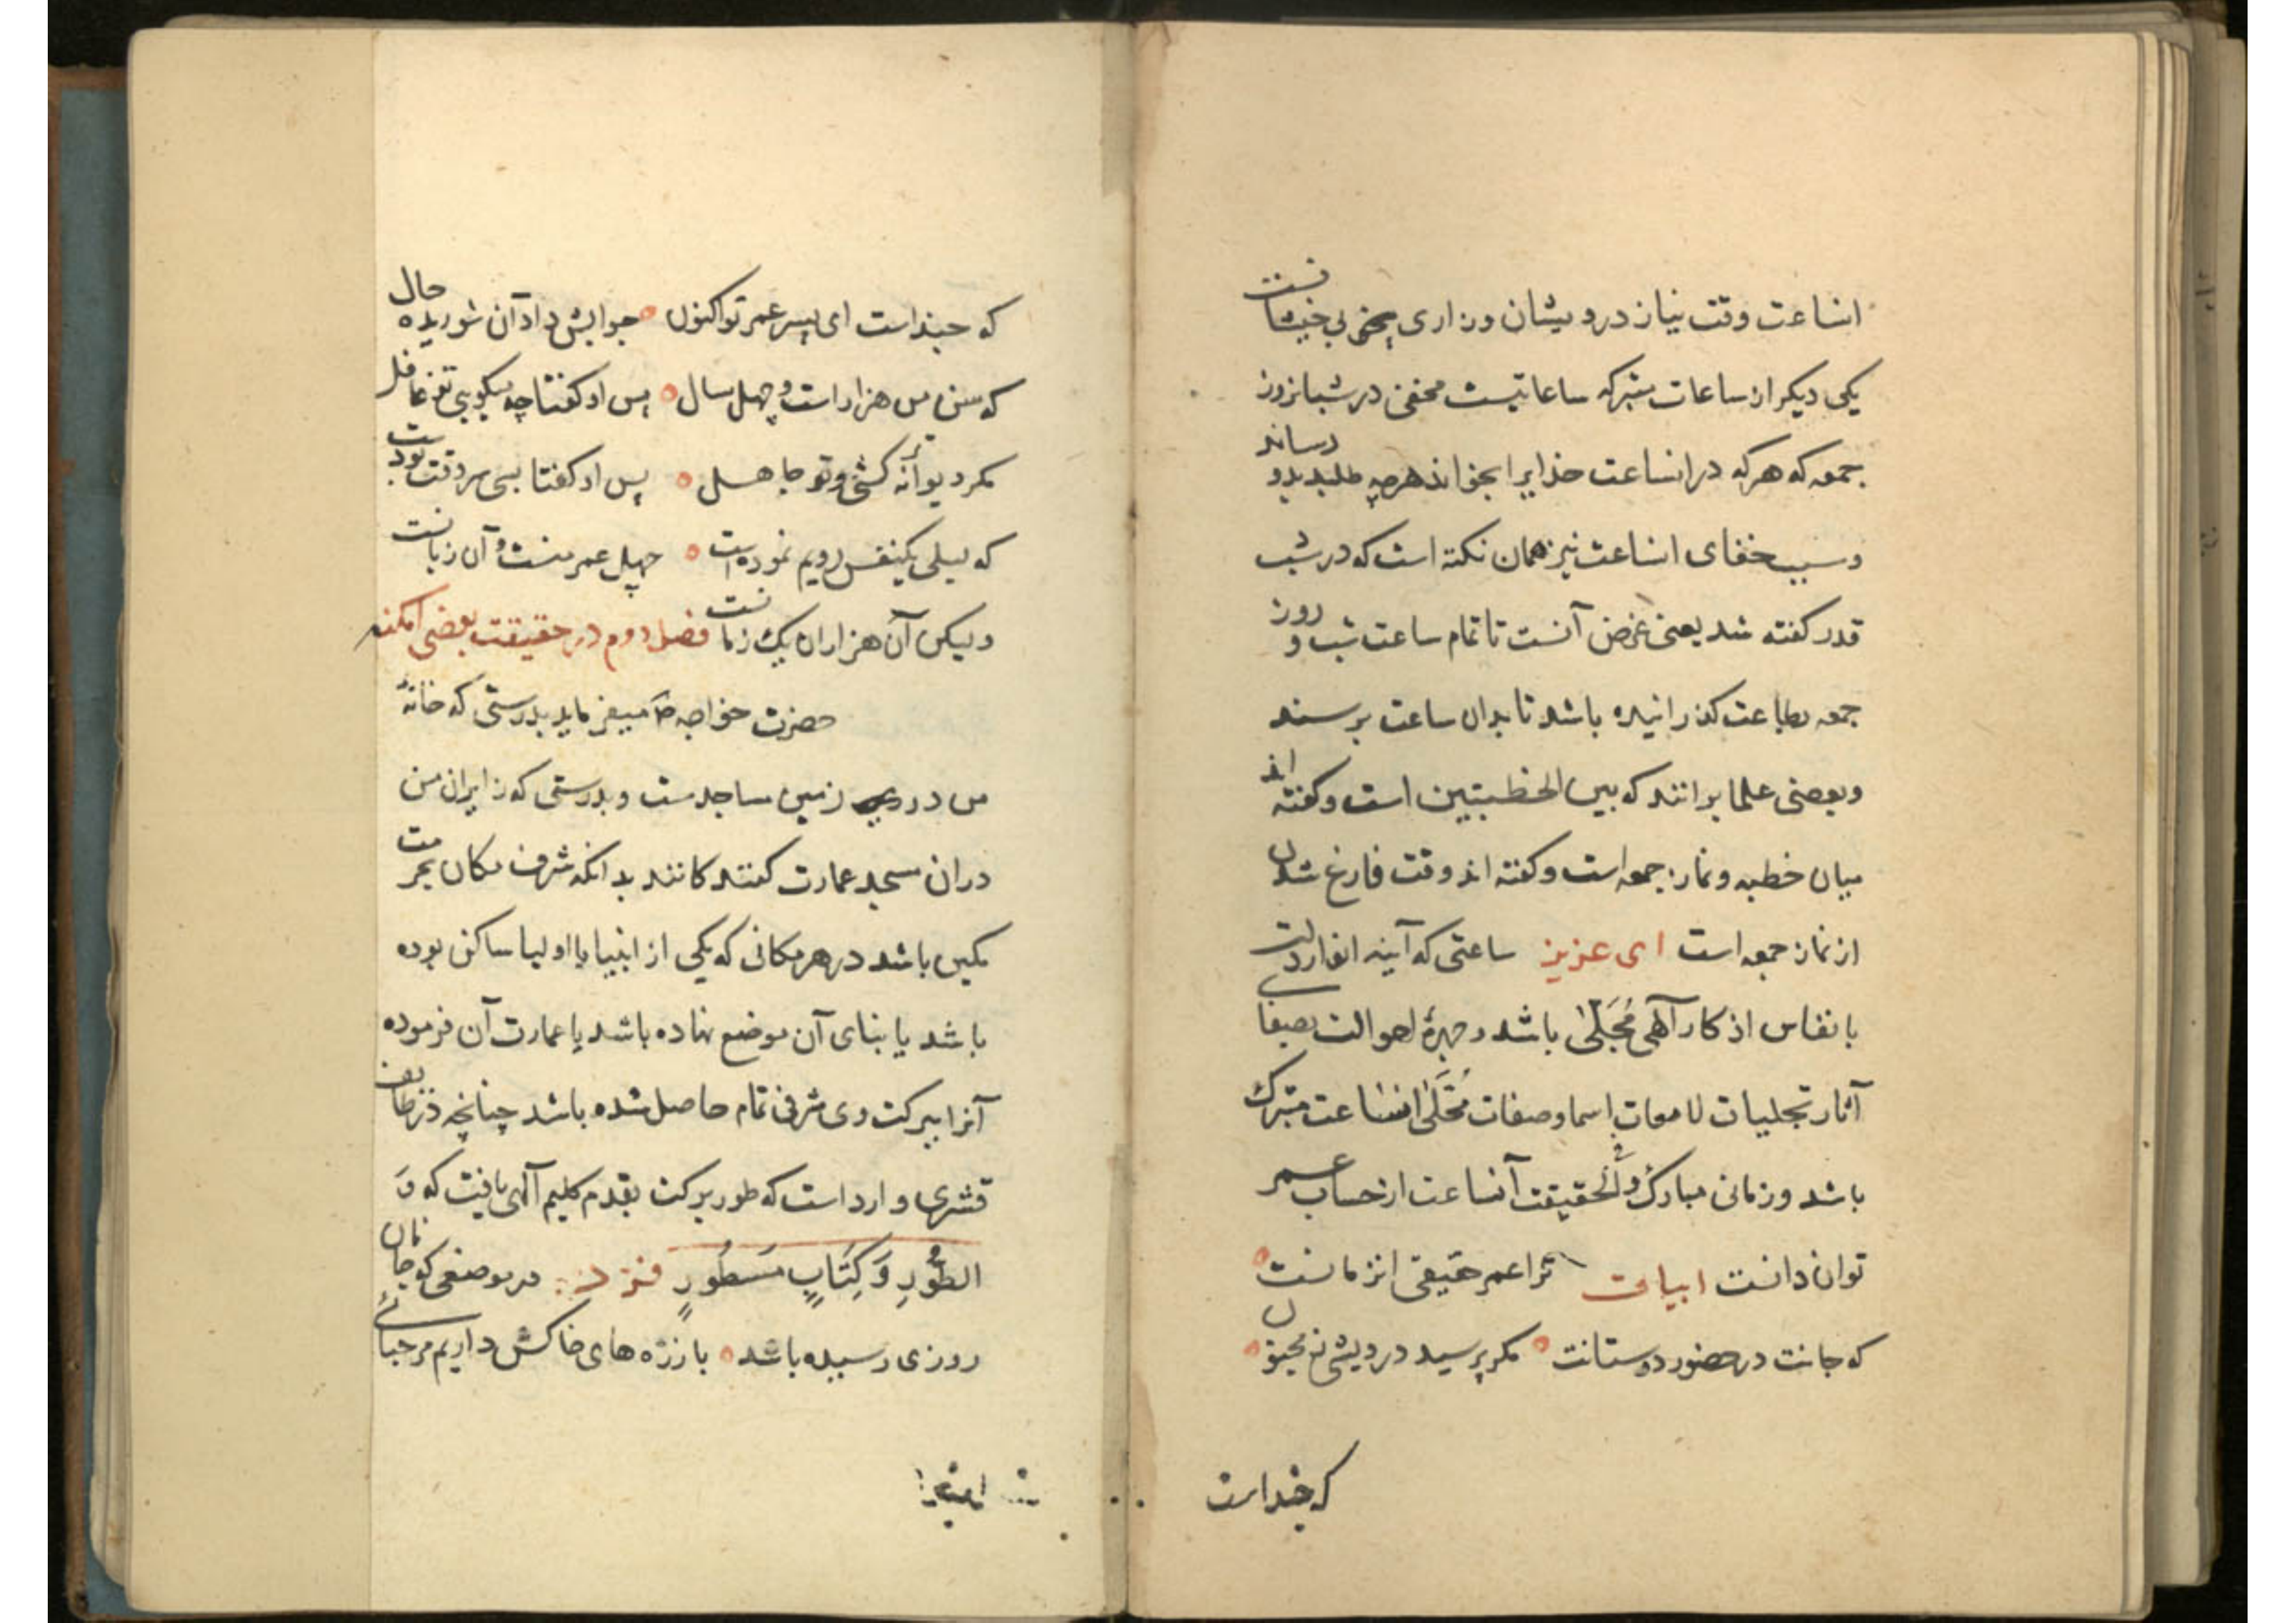 انساعت وقت نیاز درویشان وزاری
یکی دیکر از ساعات متبرکه ساعاتیست مخفی در شبانروز
جمعه که هرکه در انساعت خدایرا بخواند هرچه طلبد بدو رساند
وسبب خفای انساعت نیز همان نکته است که در شب
قدر کفته شد یعنی غرض آنست تا تمام ساعت شب و روز
جمعه بطاعت کذرانیده باشد تا بدان ساعت برسند
وبعضی علما برانند که بین الخطبتین است وکفته اند
میان خطبه ونماز جمعه است وکفته اند وقت فارغ شدن
از نماز جمعه است ای عزیز ساعتی که آینه انفاردلت
بانفاس اذکار آلهی مُجَلّیٰ باشد و چهرهٔ احوالت بصفای
آثار تجلیات لامعات اسما وصفات مُحَلّیٰ انساعت متبرک
باشد وزمانی مبارک وفی الحقیقت آنساعت از حساب عمر
توان دانست ابیات ترا عمر حقیقی انزمانست
که جانت در حضور دوستانت مکر پرسید درویشی ز مجنون
که چنداست
که چنداست ای پسر عمر تو اکنون جوابش داد آن شوریده حال
که سن من هزار است و چهل سال پس او کفتا چه میکویی تو غافل
مکر دیوانه کشتی وتو جاهل پس او کفتا بسی سر وقت بودست
که لیلی یکنفس رویم نموده است چهل عمر منست و آن زیانست
ولیکن آن هزاران یک زمانست فصل دوم در حقیقت بعضی امکنه
حضرت خواجه میفرماید بدرستی که خانهٔ
من در روی زمین مساجدست و بدرستی که زایران من
دران مسجد عمارت کنندکانند بدانکه شرف مکان بحرمت
مکین باشد در هر مکانی که یکی از انبیا یا اولیا ساکن بوده
باشد یا بنای آن موضع نهاده باشد یا عمارت آن فرموده
آنرا ببرکت وی شرفی تمام حاصل شده باشد چنانچه در لطایف
قشیری وارد است که طور برکت بقدم کلیم آلهی یافت که وَ
الطُّورِ وَ کِتَابٍ مَسطُورٍ فرد در موضعی که جانان
روزی رسیده باشد با ذره های خاکش داریم مرحبائی